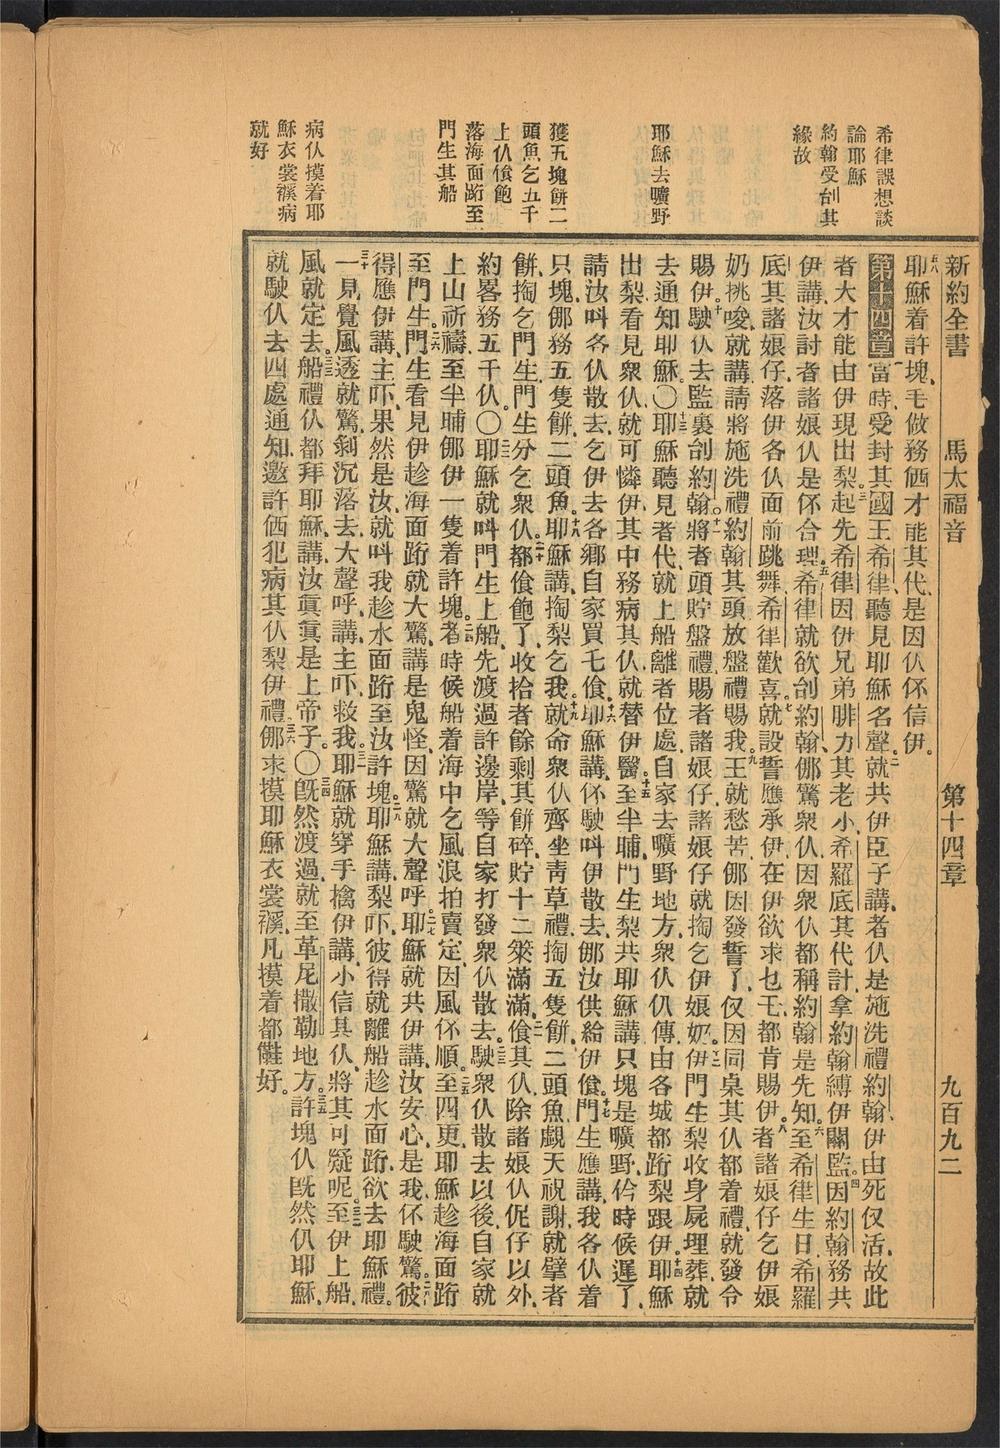 新約全書 馬太福音 第十四章 九百九二
希律誤想談
論耶穌
約翰受刣其
緣故
耶穌去曠野
獲五塊餅二
頭魚乞五千
上仈飡飽
落海面跴至
門生其船
病仈摸着耶
穌衣裳襥病
就好
五八耶穌着許塊、毛做務価才能其代、是因仈伓信伊。
第十四章 一當時受封其國王希律、聽見耶穌名聲、二就共伊臣子講、者仈是施洗禮約翰、伊由死仅活、故此
者大才能由伊現出梨、三起先希律因伊兄弟腓力其老小、希羅底其代計、拿約翰縛伊關監、四因約翰務共
伊講、汝討者諸娘仈是伓合理、五希律就欲刣約翰、㑚驚衆仈、因衆仈都稱約翰是先知。六至希律生日、希羅
底其諸娘仔、落伊各仈面前跳舞、希律歡喜、七就設誓應承伊、在伊欲求乜乇、都肯賜伊。八者諸娘仔乞伊娘
奶挑唆、就講、請將施洗禮約翰其頭放盤禮賜我、九王就愁苦、㑚因發誓了、仅因同桌其仈都着禮、就發令
賜伊、十駛仈去監裏刣約翰、十一將者頭貯盤禮、賜者諸娘仔、諸娘仔就掏乞伊娘奶。十二伊門生梨收身屍埋葬、就
去通知耶穌。〇十三耶穌聽見者代、就上船離者位處、自家去曠野地方、衆仈仉傳、由各城都跴梨跟伊、十四耶穌
出梨看見衆仈、就可憐伊、其中務病其仈、就替伊醫。十五至半晡、門生梨共耶穌講、只塊是曠野、仱時候遲了、
請汝呌各仈散去、乞伊去各鄉自家買乇飡、十六耶穌講、伓駛呌伊散去、㑚汝供給伊飡。十七門生應講、我各仈着
只塊、㑚務五隻餅、二頭魚。十八耶穌講、掏梨乞我、十九就命衆仈齊坐靑草禮、掏五隻餅、二頭魚、覷天祝謝、就擘者
餅、掏乞門生、門生分乞衆仈。二十都飡飽了、收拾者餘剩其餅碎、貯十二䈹滿滿、二一飡其仈、除諸娘仈伲仔以外、
約畧務五千仈。〇二二耶穌就呌門生上船、先渡過許邊岸、等自家打發衆仈散去、二三駛衆仈散去以後、自家就
上山祈禱、至半晡㑚伊一隻着許塊。二四者時候船着海中、乞風浪拍賣定、因風伓順。二五至四更、耶穌趁海面跴
至門生。二六門生看見伊趁海面跴、就大驚、講是鬼怪、因驚就大聲呼。二七耶穌就共伊講、汝安心、是我、伓駛驚。二八彼
得應伊講、主吓、果然是汝、就呌我趁水面跴至汝許塊、二九耶穌講、梨吓、彼得就離船、趁水面跴、欲去耶穌禮。
三十一見覺風透就驚、剩沉落去、大聲呼、講、主吓、救我、三一耶穌就穿手擒伊、講、小信其仈、將其可疑呢。三二至伊上船、
風就定去、三三船禮仈都拜耶穌、講、汝眞眞是上帝子。〇三四旣然渡過、就至革尼撒勒地方。三五許塊仈旣然仉耶穌、
就駛仈去四處通知、邀許価犯病其仈、梨伊禮、三六㑚求摸耶穌衣裳襥、凡摸着都儺好。